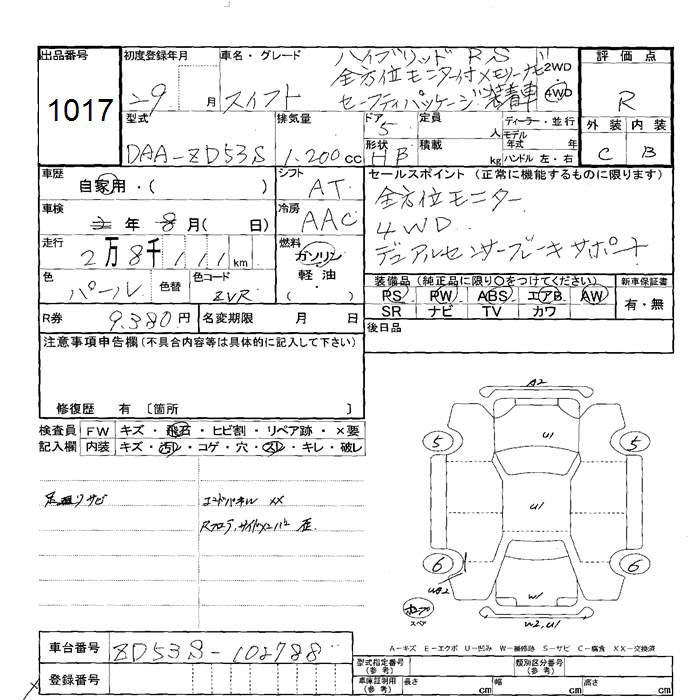 出品番号
1017
初度登録年月
29 月
車名・グレード
ハイブリッド RS
全方位モニター付メモリーナビ
スイフト セーフティパッケージ装着車
2WD
4WD
評価点
R
外装 内装
C B
型式
DAA-ZD53S
排気量
1.200cc
ドア
5
形状
HB
定員
人
積載
kg
ディーラー・並行
モデル
年式 年
ハンドル 左・右
車歴
自家用・( )
シフト
AT
車検
年 8月( 日)
冷房
AAC
走行
2万8千111km
燃料
ガソリン
軽油
( )
色
パール
色替
色コード
ZVR
R券
9.380円
名変期限 月 日
セールスポイント(正常に機能するものに限ります)
全方位モニター
4WD
デュアルセンサーブレーキサポート
装備品(純正品に限り○をつけてください)
PS PW ABS エアB AW
SR ナビ TV カワ
新車保証書
有・無
後日品
注意事項申告欄(不具合内容等は具体的に記入して下さい)
修復歴 有 〔箇所 〕
検査員
記入欄
FW キズ・飛石・ヒビ割・リペア跡・×要
内装 キズ・汚レ・コゲ・穴・スレ・キレ・破レ
足廻りサビ
エンドパネル XX
Rフロア、サイドメンバー 歪
A2
5
U1
5
U1
6
6
UB2
W1
W2,U1
スペア
A-キズ E-エクボ U-凹み W-補修跡 S-サビ C-腐食 XX-交換済
車台番号
ZD53S-102788
登録番号
型式指定番号
(参考)
類別区分番号
(参考)
車庫証明用
(参考)
長さ cm
幅 cm
高さ cm